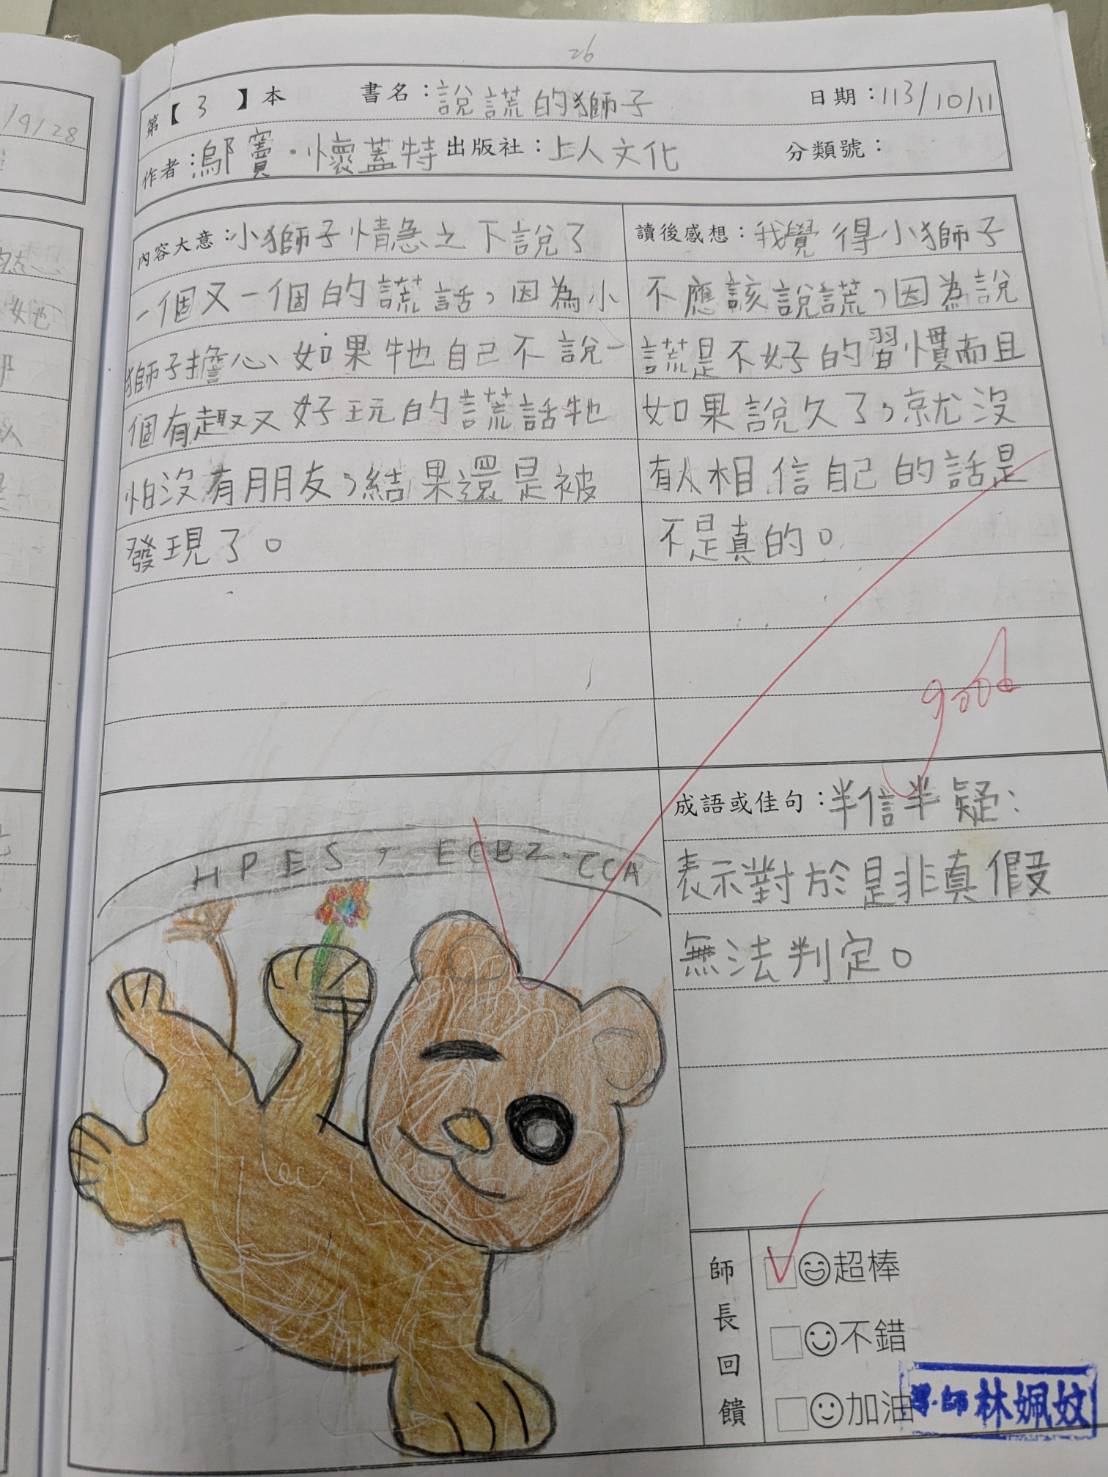 26
第【 3 】本 書名：說謊的獅子 日期：113/10/11
作者：鄔竇·懷蓋特 出版社：上人文化 分類號：
內容大意：小獅子情急之下說了
一個又一個的謊話，因為小
獅子擔心如果牠自己不說一
個有趣又好玩的謊話牠
怕沒有朋友，結果還是被
發現了。
讀後感想：我覺得小獅子
不應該說謊，因為說
謊是不好的習慣而且
如果說久了，就沒
有人相信自己的話是
不是真的。
good
成語或佳句：半信半疑：
表示對於是非真假
無法判定。
HPES, ECBZ.CCA
師長回饋
超棒
不錯
加油
導師 林姵妏
/9/28